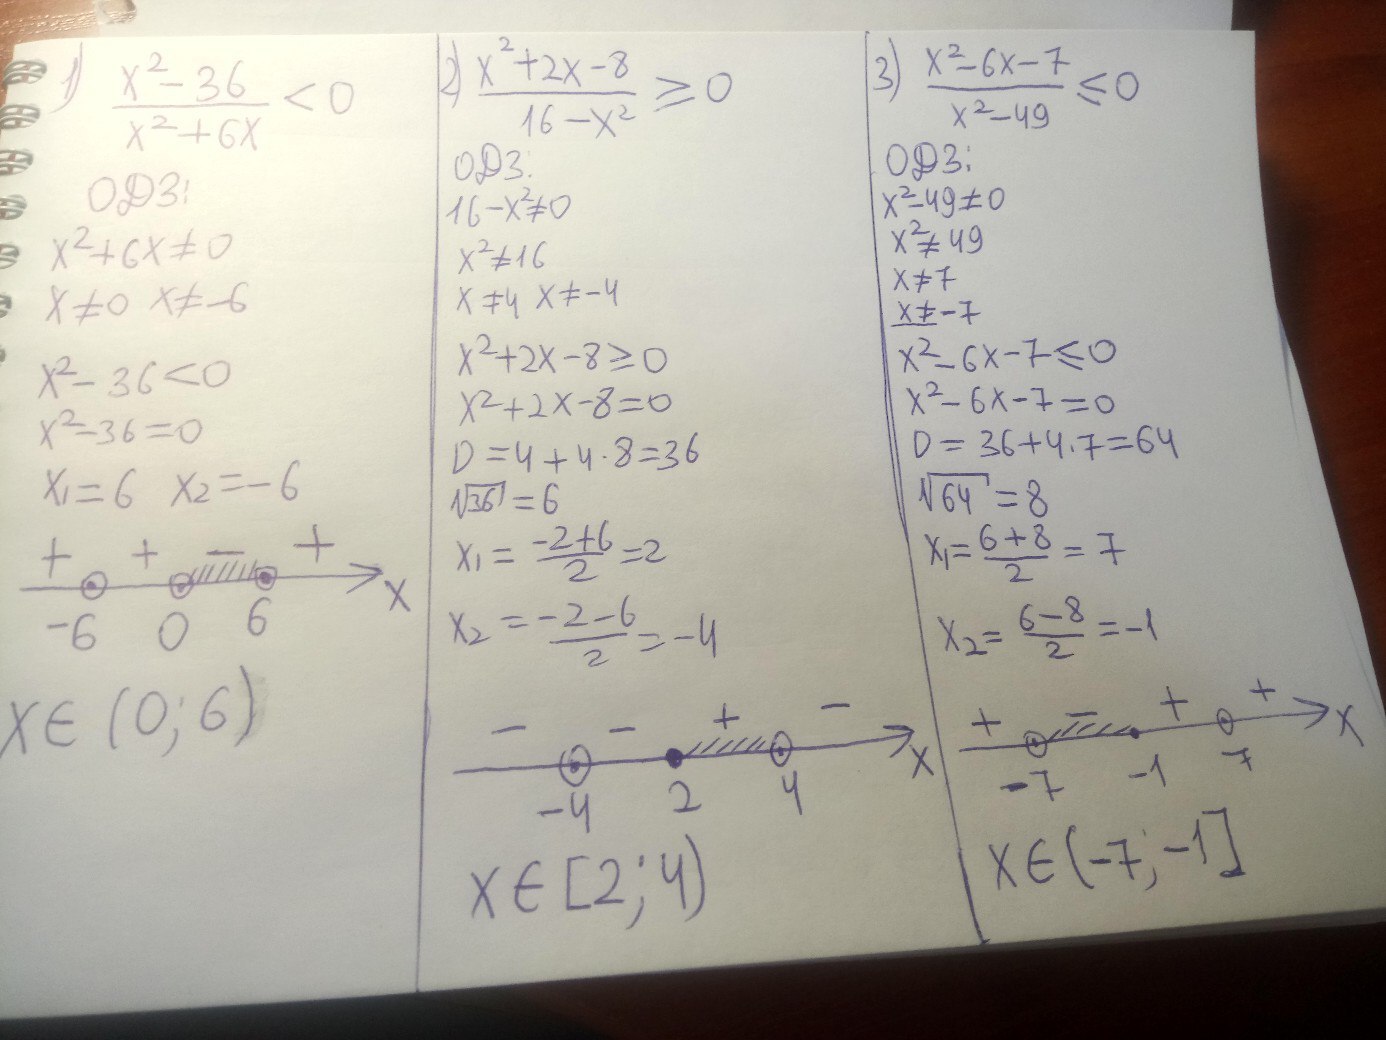 1) x²-36 / x²+6x < 0
ОДЗ:
x²+6x≠0
x≠0 x≠-6
x²-36<0
x²-36=0
x₁=6 x₂=-6
+ + - +
-6 0 6 x
x∈(0;6)
2) x²+2x-8 / 16-x² ≥ 0
ОДЗ:
16-x²≠0
x²≠16
x≠4 x≠-4
x²+2x-8≥0
x²+2x-8=0
D=4+4·8=36
√36=6
x₁=(-2+6)/2=2
x₂=(-2-6)/2=-4
- - + -
-4 2 4 x
x∈[2;4)
3) x²-6x-7 / x²-49 ≤ 0
ОДЗ:
x²-49≠0
x²≠49
x≠7
x≠-7
x²-6x-7≤0
x²-6x-7=0
D=36+4·7=64
√64=8
x₁=(6+8)/2=7
x₂=(6-8)/2=-1
+ - + +
-7 -1 7 x
x∈(-7;-1]